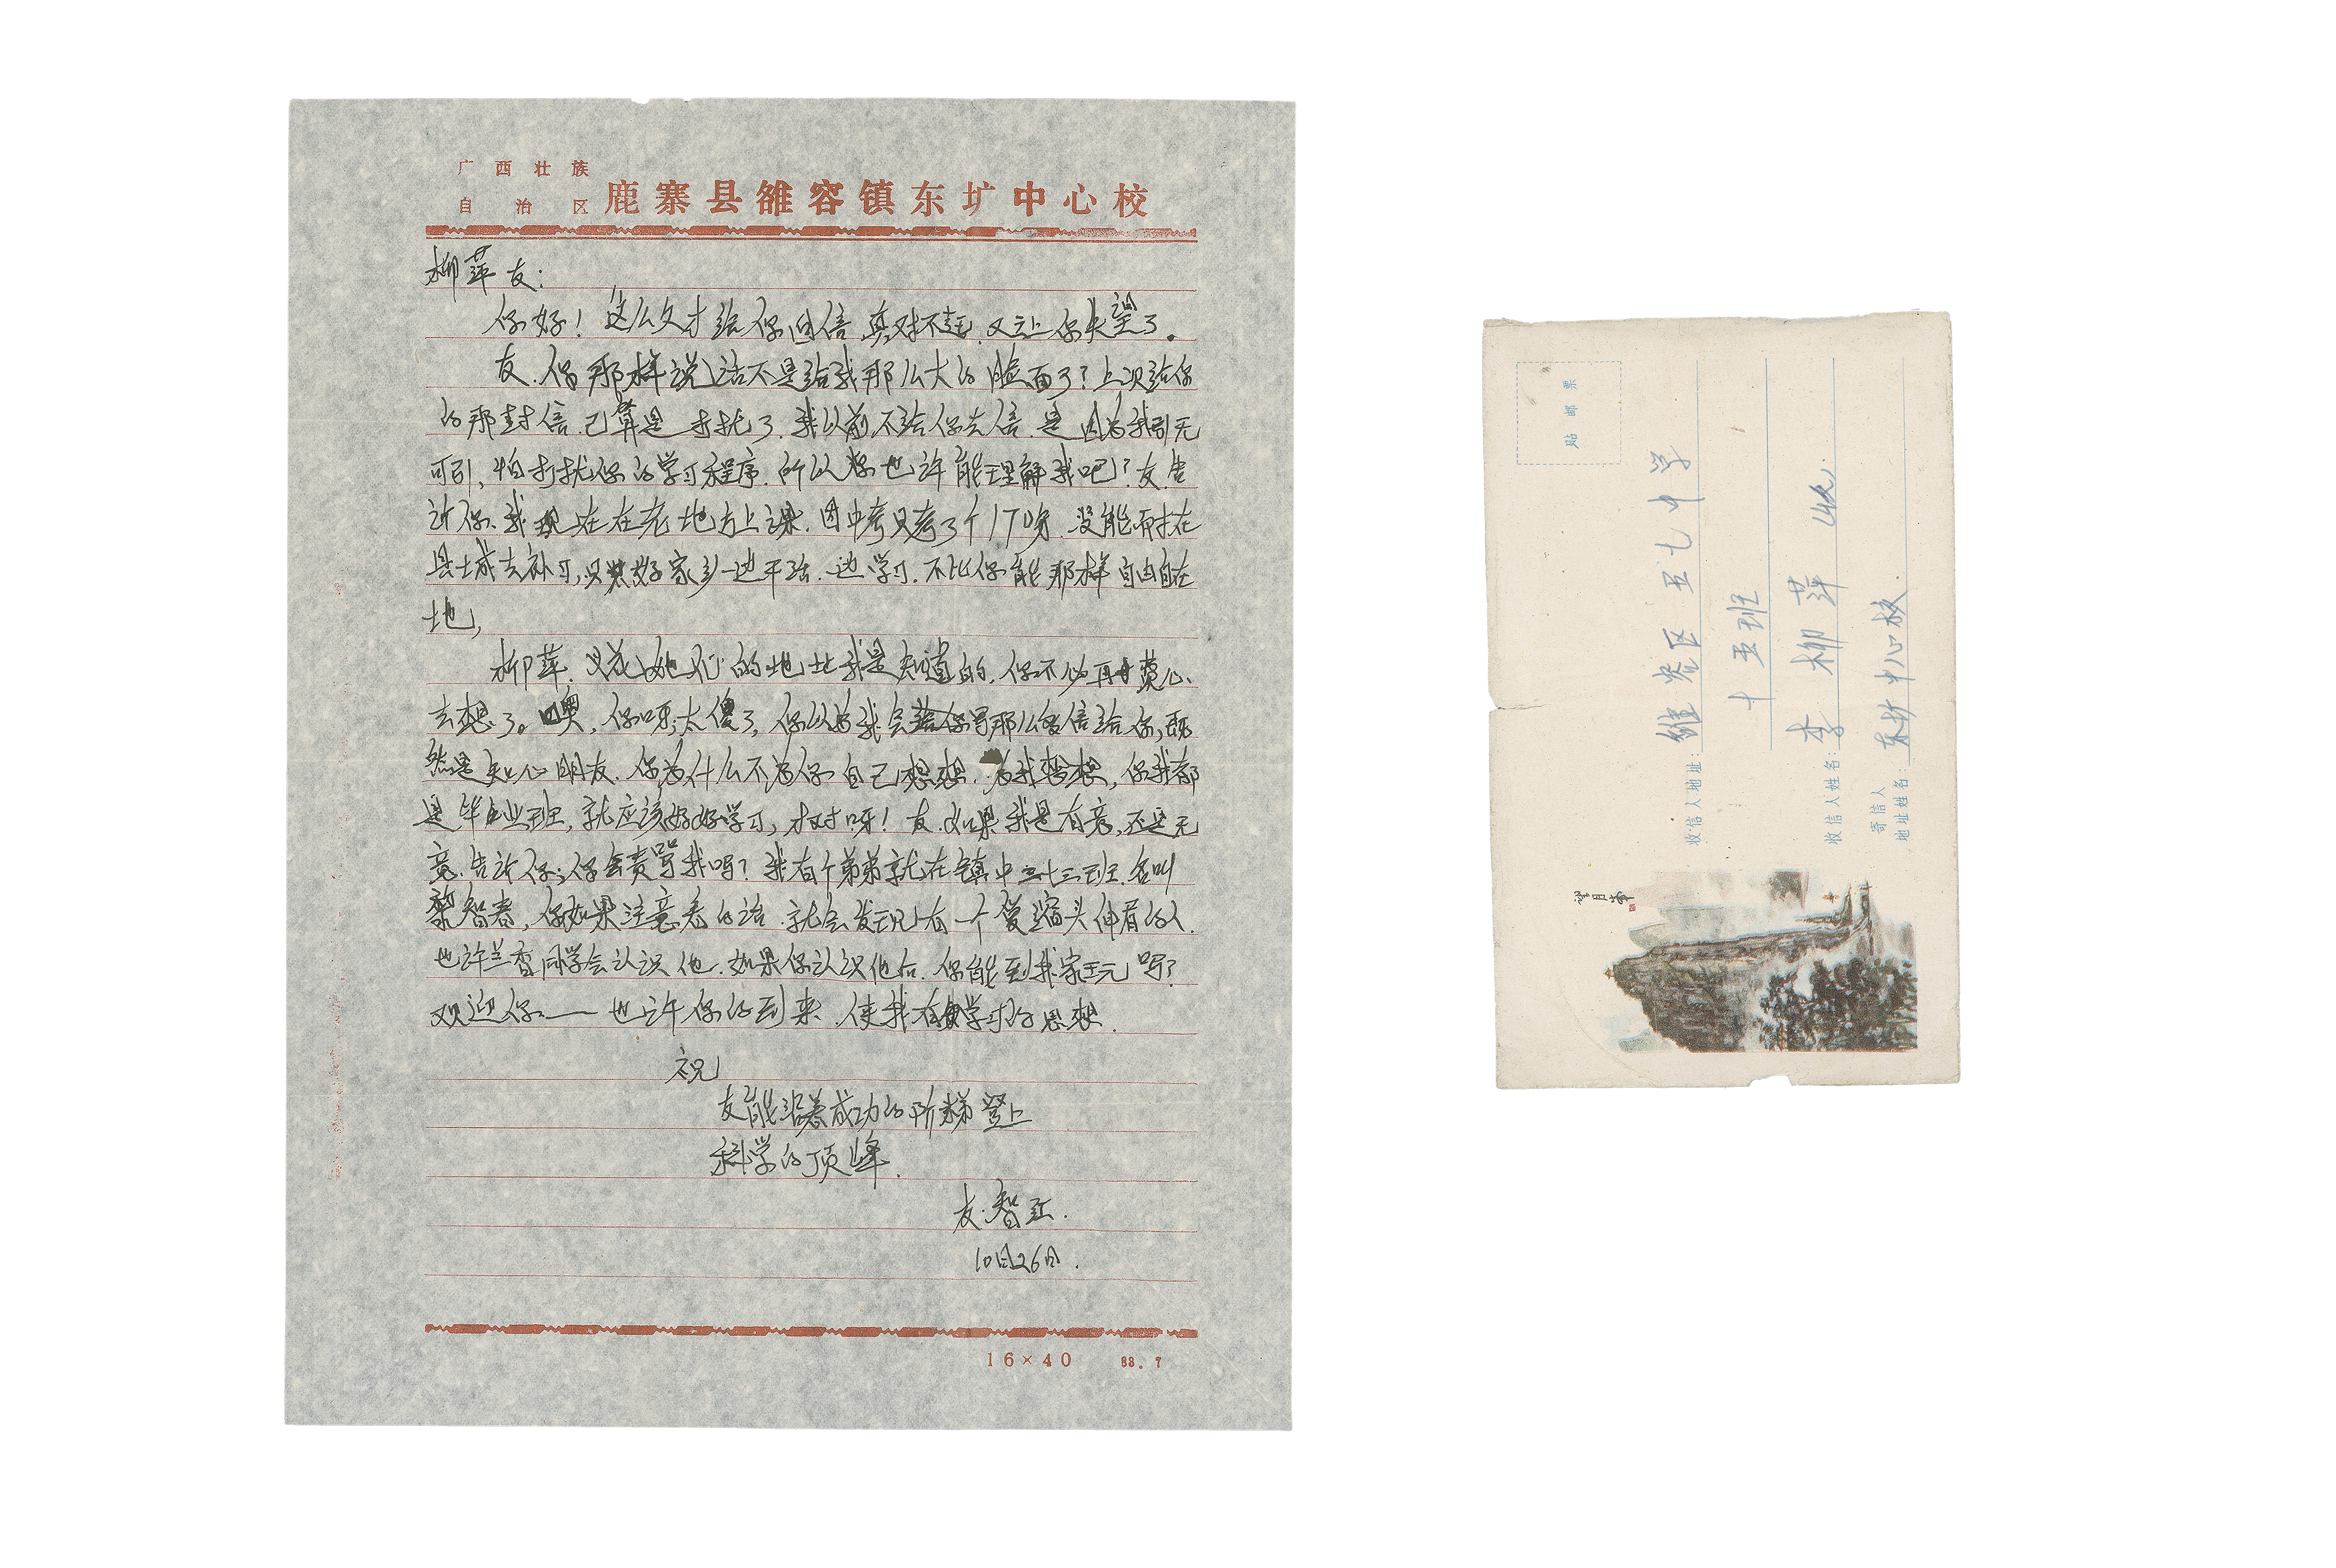 广西壮族
自治区
鹿寨县雒容镇东圹中心校
柳萍友:
你好!这么久才给你回信真对不起,又让你失望了。
友.你那样说话不是给我那么大的脸面了?上次给你
的那封信.已算是打扰了.我以前不给你去信.是因为我引无
可引,怕打扰你的学习程序.所以你也许能理解我吧?友.告
诉你、我现在在老地方上课.因中考只考了个170分.没能而才在
县城去补习,只好家乡一边干活.一边学习.不比你能那样自由自在
地,
柳萍.她们的地址我是知道的.你不必再费心
去想了。噢,你呀,太傻了,你以为我会写那么多信给你,既
然是知心朋友.你为什么不为你自己想想.为我想想,你我都
是毕业班,就应该好好学习,才对呀!友.如果我是有意,还是无
意.告诉你,你会责骂我吗?我有个弟弟就在镇中三十三班.名叫
黎智春,你如果注意看的话.就会发现有一个爱缩头伸肩的人.
也许兰香同学会认识他.如果你认识他后.你能到我家玩吗?
欢迎你——也许你的到来.使我有学习的思想.
祝
友能沿着成功的阶梯登上
科学的顶峰.
友.智江.
10月26日.
16×40 88.7
贴邮票
收信人地址:雒容区五七中学
十五班
收信人姓名:李柳萍 收.
寄信人
地址姓名:东圹中心校.